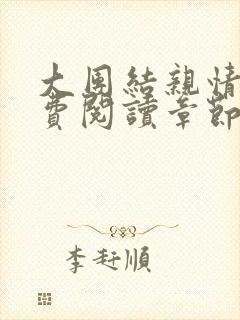 大團結親情
費閱讀章節
李玨順